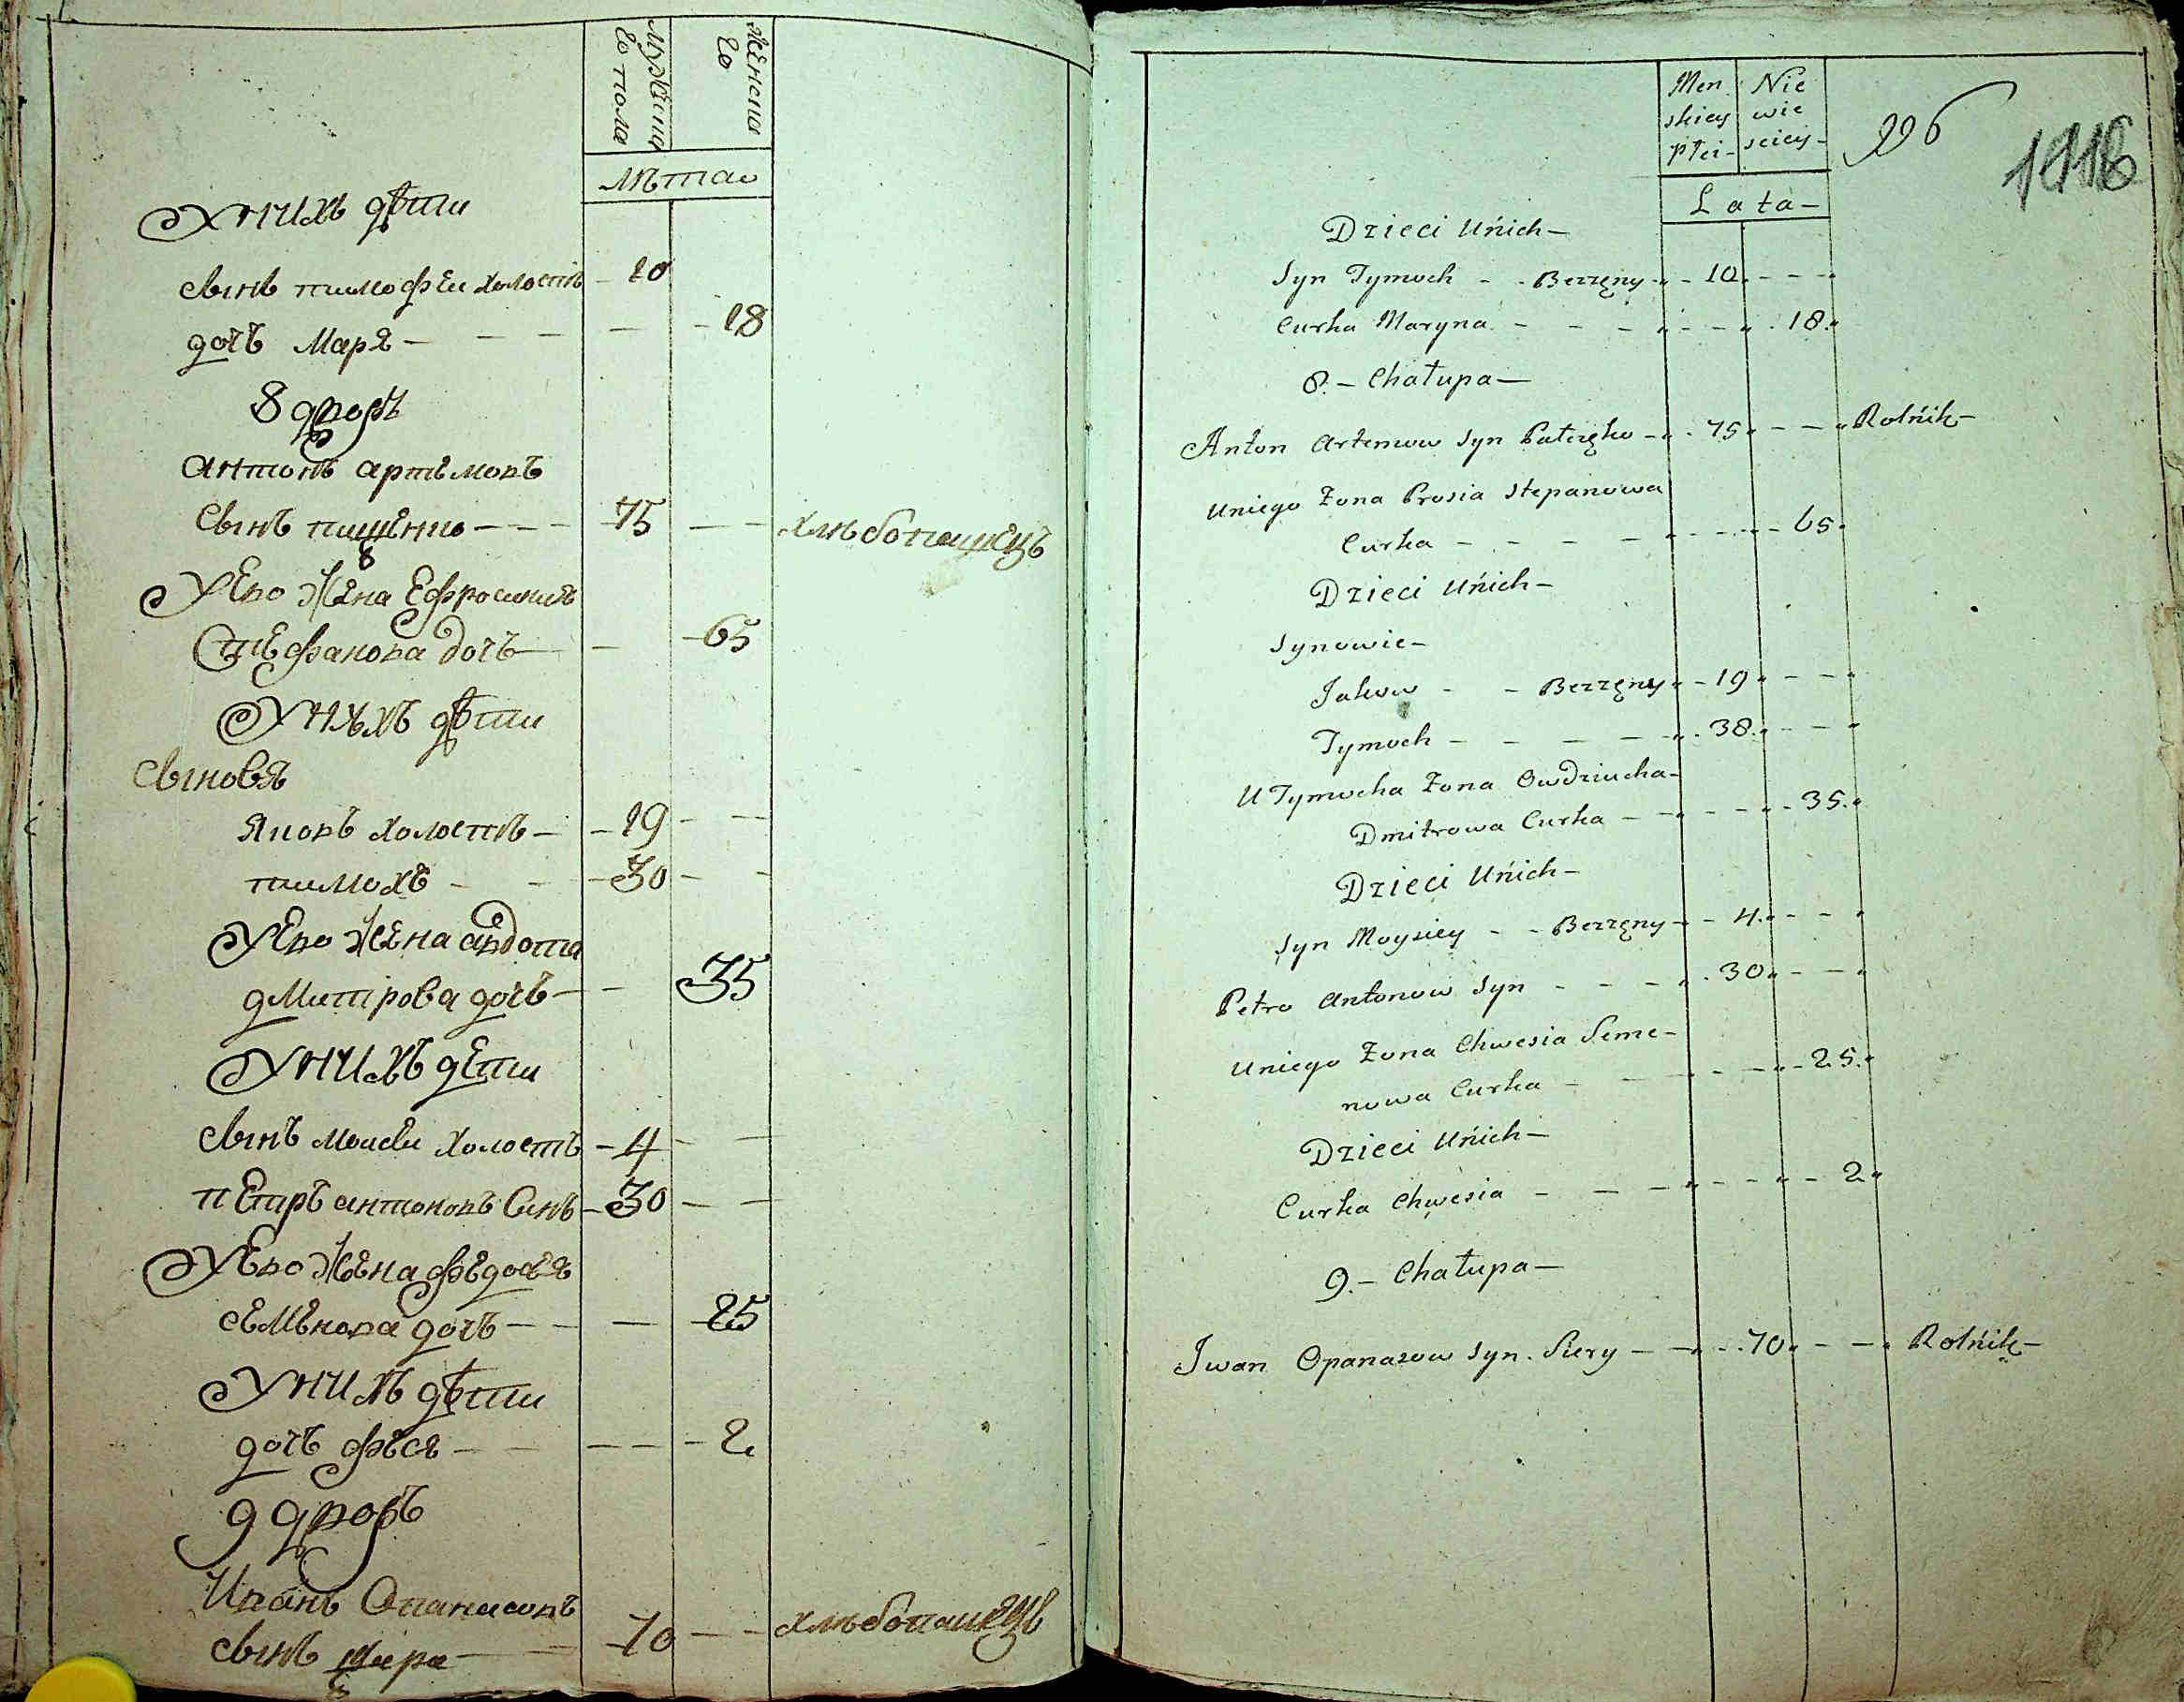 Мужеска
го пола
женска
го
Лѣта
У нихъ дѣти
сынъ тимофеи холостъ - 10
дочъ Маря - - - 18
8 дворъ
Антонъ артемовъ
сынъ - - - 75 - - хлѣбопашецъ
У Его Жена Ефросиния
стефанова дочъ - - 65
У нихъ дѣти
сыновя
Яковъ холостъ - - 19 - -
тимохъ - - - 30 - -
У Его Жена авдотя
дмитрова дочъ - - 35
У нихъ дети
сынъ моисеи холостъ - 4 - -
петръ антоновъ Синъ - 30 - -
У Его Жена федося
семенова дочъ - - - 25
У нихъ дѣти
дочъ феся - - - - 2
9 дворъ
Иванъ Опанасовъ
сынъ - - 70 - - хлѣбопашецъ
Men Nie
skiey wie
Płci - sciey -
226
1116
Lata -
Dzieci Unich -
Syn Tymoch - - Bezzęny - - 10 - - -
Curka Maryna - - - - - - 18
8. - Chałupa -
Anton Artemow Syn - - 75 - - - Rolnik -
Uniego Zona Prosia Stepanowa
Curka - - - - - - - 65
Dzieci Unich -
Synowie -
Jakow - - Bezzęny - 19 - - -
Tymoch - - - - - 38 - - -
U Tymocha Zona Owdziucha -
Dmitrowa Curka - - - - - 35
Dzieci Unich -
Syn Moysiey - - Bezzęny - - 4 - - -
Petro Antonow Syn - - - - 30 - - -
Uniego Zona Chwesia Seme -
nowa Curka - - - - - 25
Dzieci Unich -
Curka Chwesia - - - - - - 2
9. - Chałupa -
Iwan Opanasow Syn Siery - - - 70 - - - Rolnik -